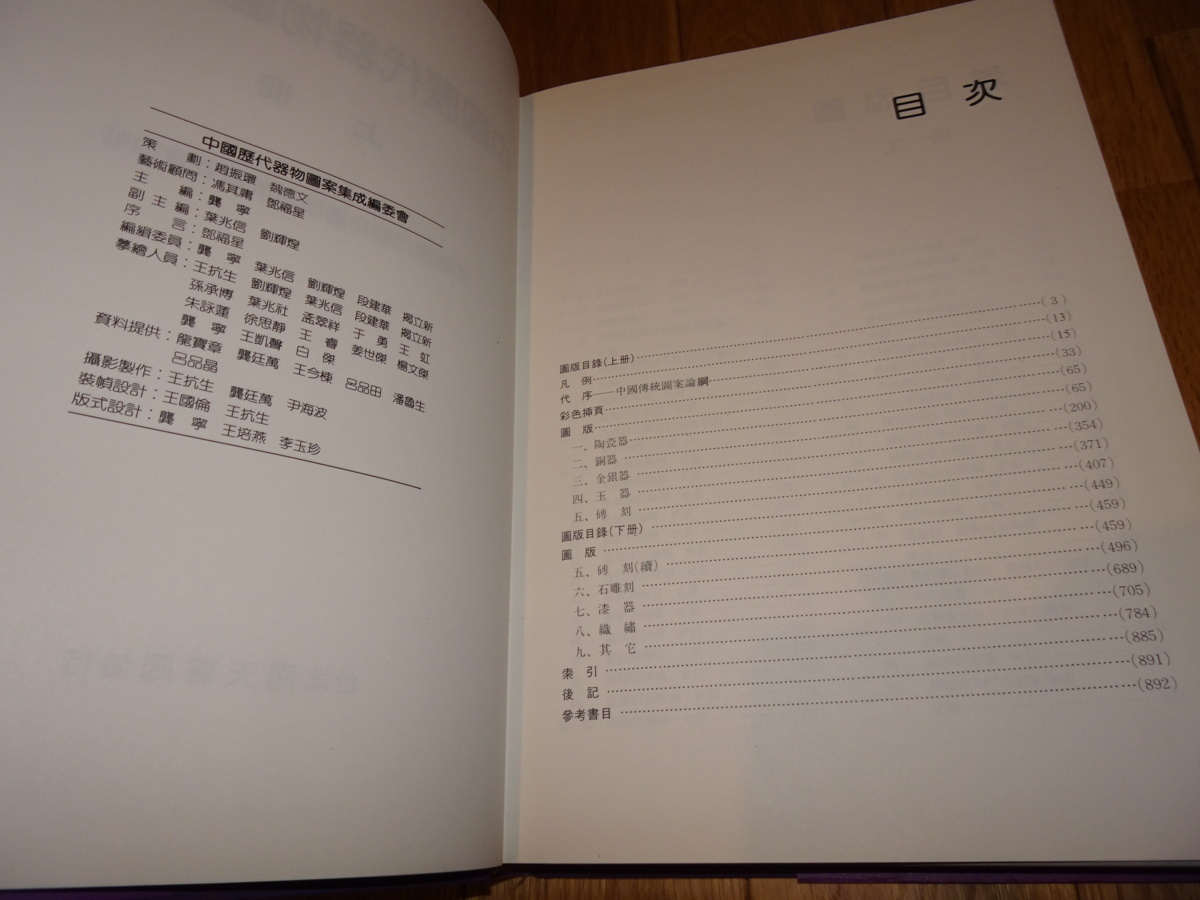 中國歷代器物圖案集成編委會
策　劃：趙振環　魏德文
藝術顧問：馮其庸　鄧福星
主　編：龔　寧
副主編：葉兆信　劉輝煌
序　言：鄧福星
編緝委員：龔　寧　葉兆信　劉輝煌　段建華　揭立新
摹繪人員：王抗生　劉輝煌　葉兆信　段建華　揭立新
孫承博　葉兆社　孟翠祥　于　勇　王　虹
朱詠蓮　徐思靜　王　睿　姜世傑　楊文傑
龔　寧　王凱聲　白　傑
資料提供：龍寶章　龔廷萬　王今棟　呂品田　潘魯生
呂品晶
攝影製作：王抗生　龔廷萬　尹海波
裝幀設計：王國倫　王抗生
版式設計：龔　寧　王培燕　李玉珍
目　次
圖版目錄(上册)……(3)
凡　例……(13)
代　序——中國傳統圖案論綱……(15)
彩色揷頁……(33)
圖　版……(65)
一、陶瓷器……(65)
二、銅器……(200)
三、金銀器……(354)
四、玉　器……(371)
五、磚　刻……(407)
圖版目錄(下册)……(449)
圖　版……(459)
五、磚　刻(續)……(459)
六、石雕刻……(496)
七、漆　器……(689)
八、織　繡……(705)
九、其　它……(784)
索　引……(885)
後　記……(891)
參考書目……(892)